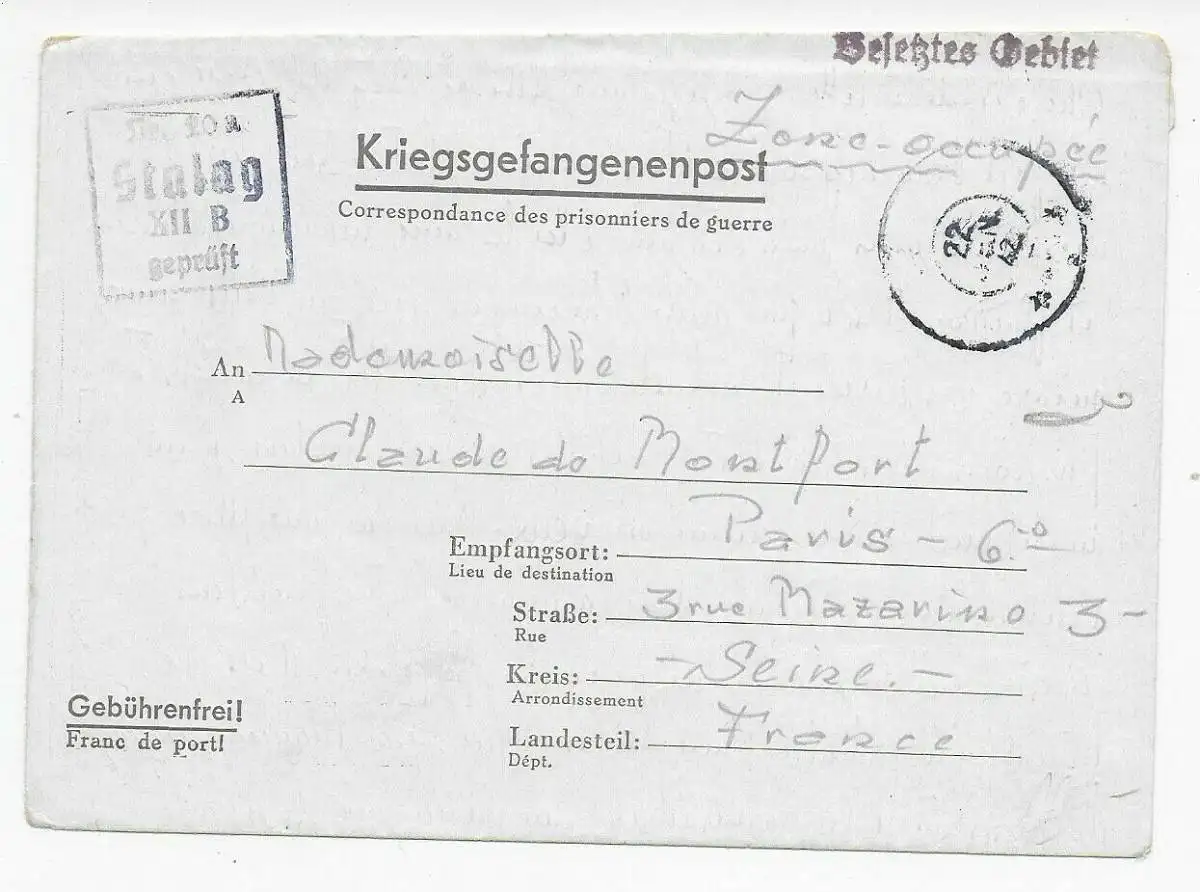 Besetztes Gebiet
Zone-occupée
20
Stalag
XII B
geprüft
Kriegsgefangenenpost
Correspondance des prisonniers de guerre
22
42
An Mademoiselle
A
Claude de Montfort
Paris - 6.e
Empfangsort:
Lieu de destination
Straße: 3 rue Mazarine 3 -
Rue
Kreis: - Seine. -
Arrondissement
Gebührenfrei!
Franc de port!
Landesteil: France
Dépt.